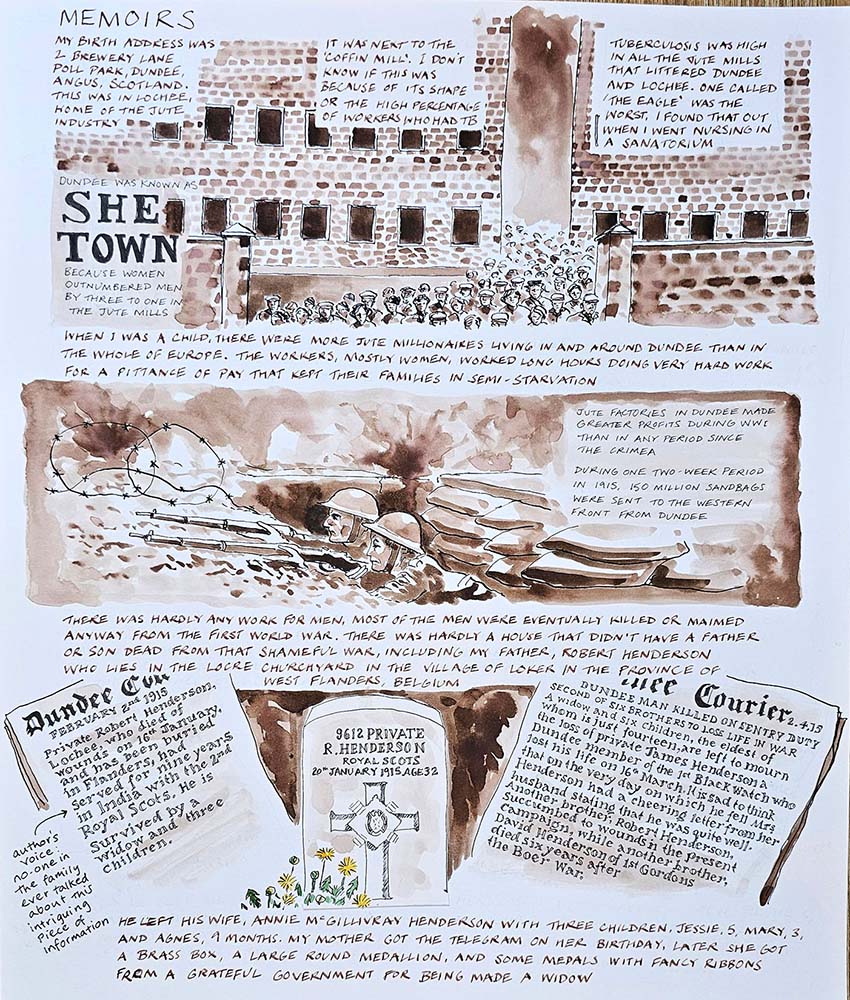 MEMOIRS
MY BIRTH ADDRESS WAS
2 BREWERY LANE
POLL PARK, DUNDEE,
ANGUS, SCOTLAND.
THIS WAS IN LOCHEE,
HOME OF THE JUTE
INDUSTRY
IT WAS NEXT TO THE
'COFFIN MILL'. I DON'T
KNOW IF THIS WAS
BECAUSE OF ITS SHAPE
OR THE HIGH PERCENTAGE
OF WORKERS WHO HAD TB
TUBERCULOSIS WAS HIGH
IN ALL THE JUTE MILLS
THAT LITTERED DUNDEE
AND LOCHEE. ONE CALLED
'THE EAGLE' WAS THE
WORST, I FOUND THAT OUT
WHEN I WENT NURSING IN
A SANATORIUM
DUNDEE WAS KNOWN AS
SHE
TOWN
BECAUSE WOMEN
OUTNUMBERED MEN
BY THREE TO ONE IN
THE JUTE MILLS
WHEN I WAS A CHILD, THERE WERE MORE JUTE MILLIONAIRES LIVING IN AND AROUND DUNDEE THAN IN
THE WHOLE OF EUROPE. THE WORKERS, MOSTLY WOMEN, WORKED LONG HOURS DOING VERY HARD WORK
FOR A PITTANCE OF PAY THAT KEPT THEIR FAMILIES IN SEMI-STARVATION
JUTE FACTORIES IN DUNDEE MADE
GREATER PROFITS DURING WW1
THAN IN ANY PERIOD SINCE
THE CRIMEA
DURING ONE TWO-WEEK PERIOD
IN 1915, 150 MILLION SANDBAGS
WERE SENT TO THE WESTERN
FRONT FROM DUNDEE
THERE WAS HARDLY ANY WORK FOR MEN, MOST OF THE MEN WERE EVENTUALLY KILLED OR MAIMED
ANYWAY FROM THE FIRST WORLD WAR. THERE WAS HARDLY A HOUSE THAT DIDN'T HAVE A FATHER
OR SON DEAD FROM THAT SHAMEFUL WAR, INCLUDING MY FATHER, ROBERT HENDERSON
WHO LIES IN THE LOCRE CHURCHYARD IN THE VILLAGE OF LOKER IN THE PROVINCE OF
WEST FLANDERS, BELGIUM
Dundee Cou
FEBRUARY 2nd 1915
Private Robert Henderson,
Lochee, who died of
wounds on 16th January,
and has been buried
in Flanders, had
served for nine years
in India with the 2nd
Royal Scots. He is
Survived by a
widow and three
children.
author's
voice:
no-one in
the family
ever talked
about this
intriguing
piece of
information
9612 PRIVATE
R. HENDERSON
ROYAL SCOTS
20TH JANUARY 1915 AGE 32
nee Courier 2.4.15
DUNDEE MAN KILLED ON SENTRY DUTY
SECOND OF SIX BROTHERS TO LOSE LIFE IN WAR
A widow and six children, the eldest of
whom is just fourteen, are left to mourn
the loss of private James Henderson a
Dundee member of the 1st Black Watch who
lost his life on 16th March. It is sad to think
that on the very day on which he fell Mrs
Henderson had a cheering letter from her
husband stating that he was quite well.
Another brother, Robert Henderson,
Succumbed to wounds in the present
campaign, while another brother,
David Henderson of 1st Gordons
died six years after
the Boer War.
HE LEFT HIS WIFE, ANNIE McGILLIVRAY HENDERSON WITH THREE CHILDREN, JESSIE, 5, MARY, 3,
AND AGNES, 9 MONTHS. MY MOTHER GOT THE TELEGRAM ON HER BIRTHDAY, LATER SHE GOT
A BRASS BOX, A LARGE ROUND MEDALLION, AND SOME MEDALS WITH FANCY RIBBONS
FROM A GRATEFUL GOVERNMENT FOR BEING MADE A WIDOW